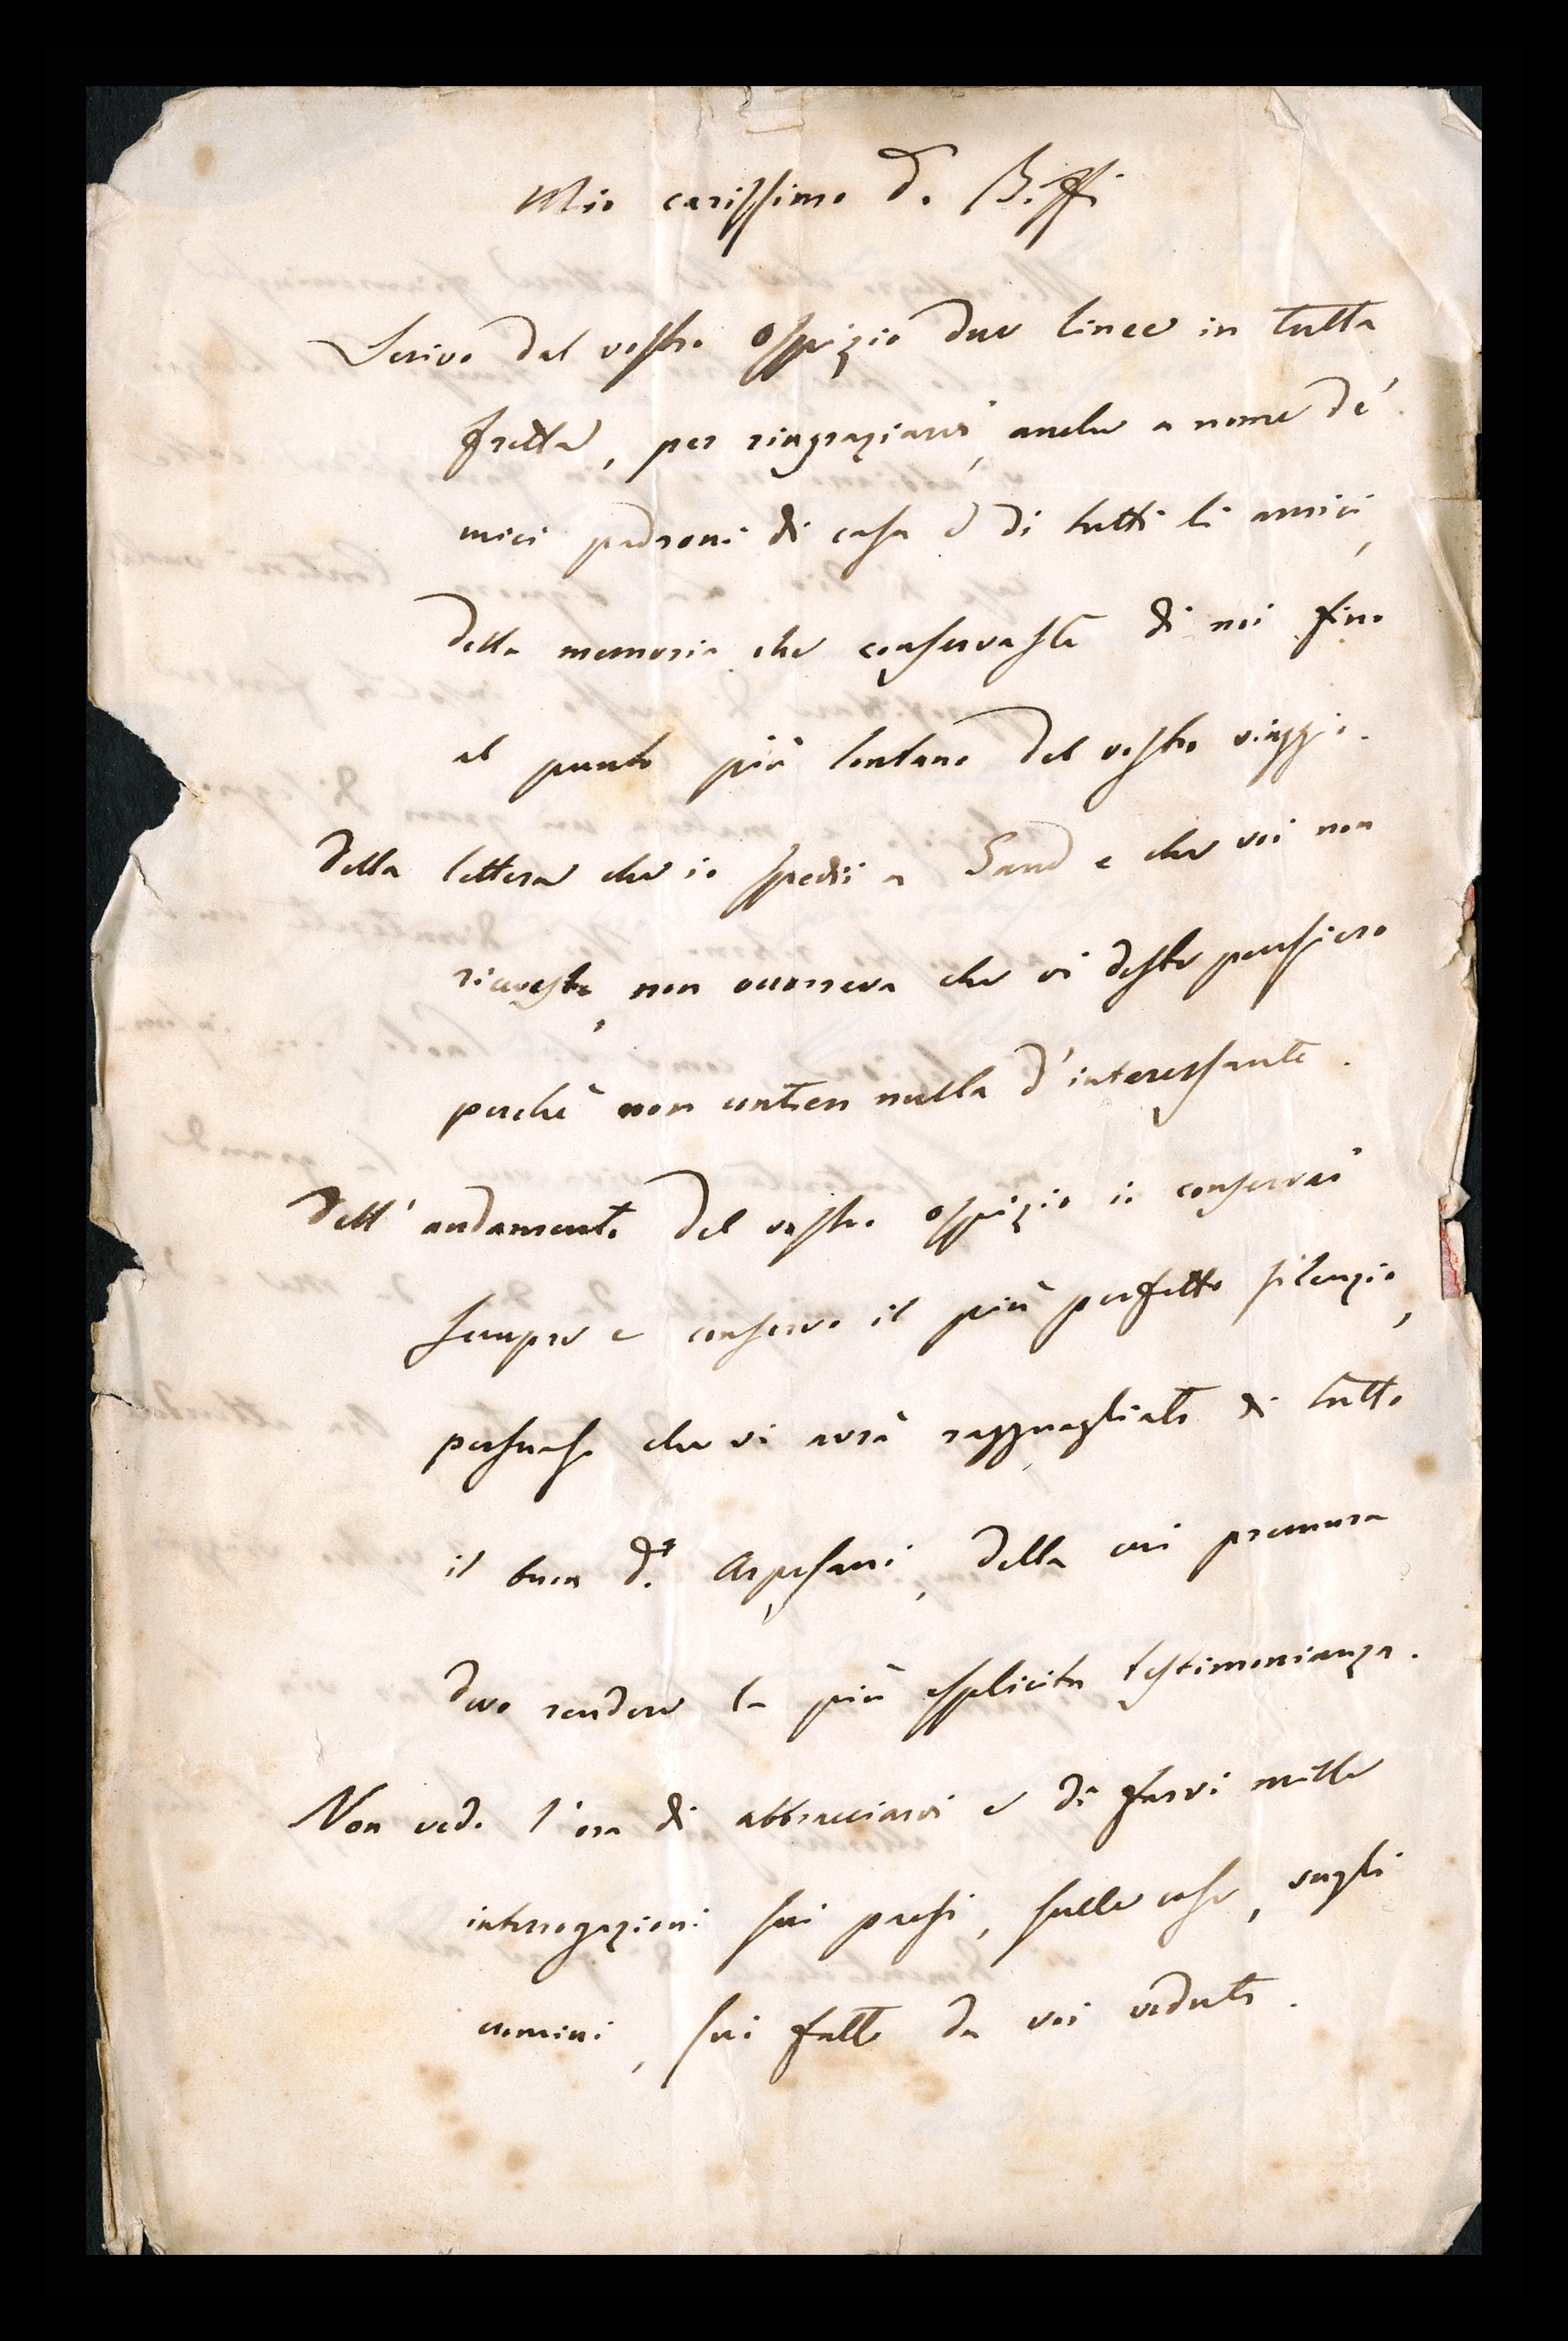 Mio carissimo D. Biffi
Scrivo dal vostro Ospizio due linee in tutta
fretta, per ringraziarvi, anche a nome de'
miei padroni di casa e di tutti li amici,
della memoria che conservaste di noi fino
al punto più lontano del vostro viaggio.
Della lettera che io spedii a Gand e che voi non
riceveste, non occorreva che vi deste pensiero
perchè non contien nulla d'interessante.
Dell'andamento del vostro ospizio io conservai
sempre e conservo il più perfetto silenzio,
persuaso che vi avrà ragguagliato di tutto
il buon D.r Arpesani, della cui premura
devo rendere la più esplicita testimonianza.
Non vedo l'ora di abbracciarvi e di farvi mille
interrogazioni sui paesi, sulle cose, sugli
uomini, sui fatti da voi veduti.